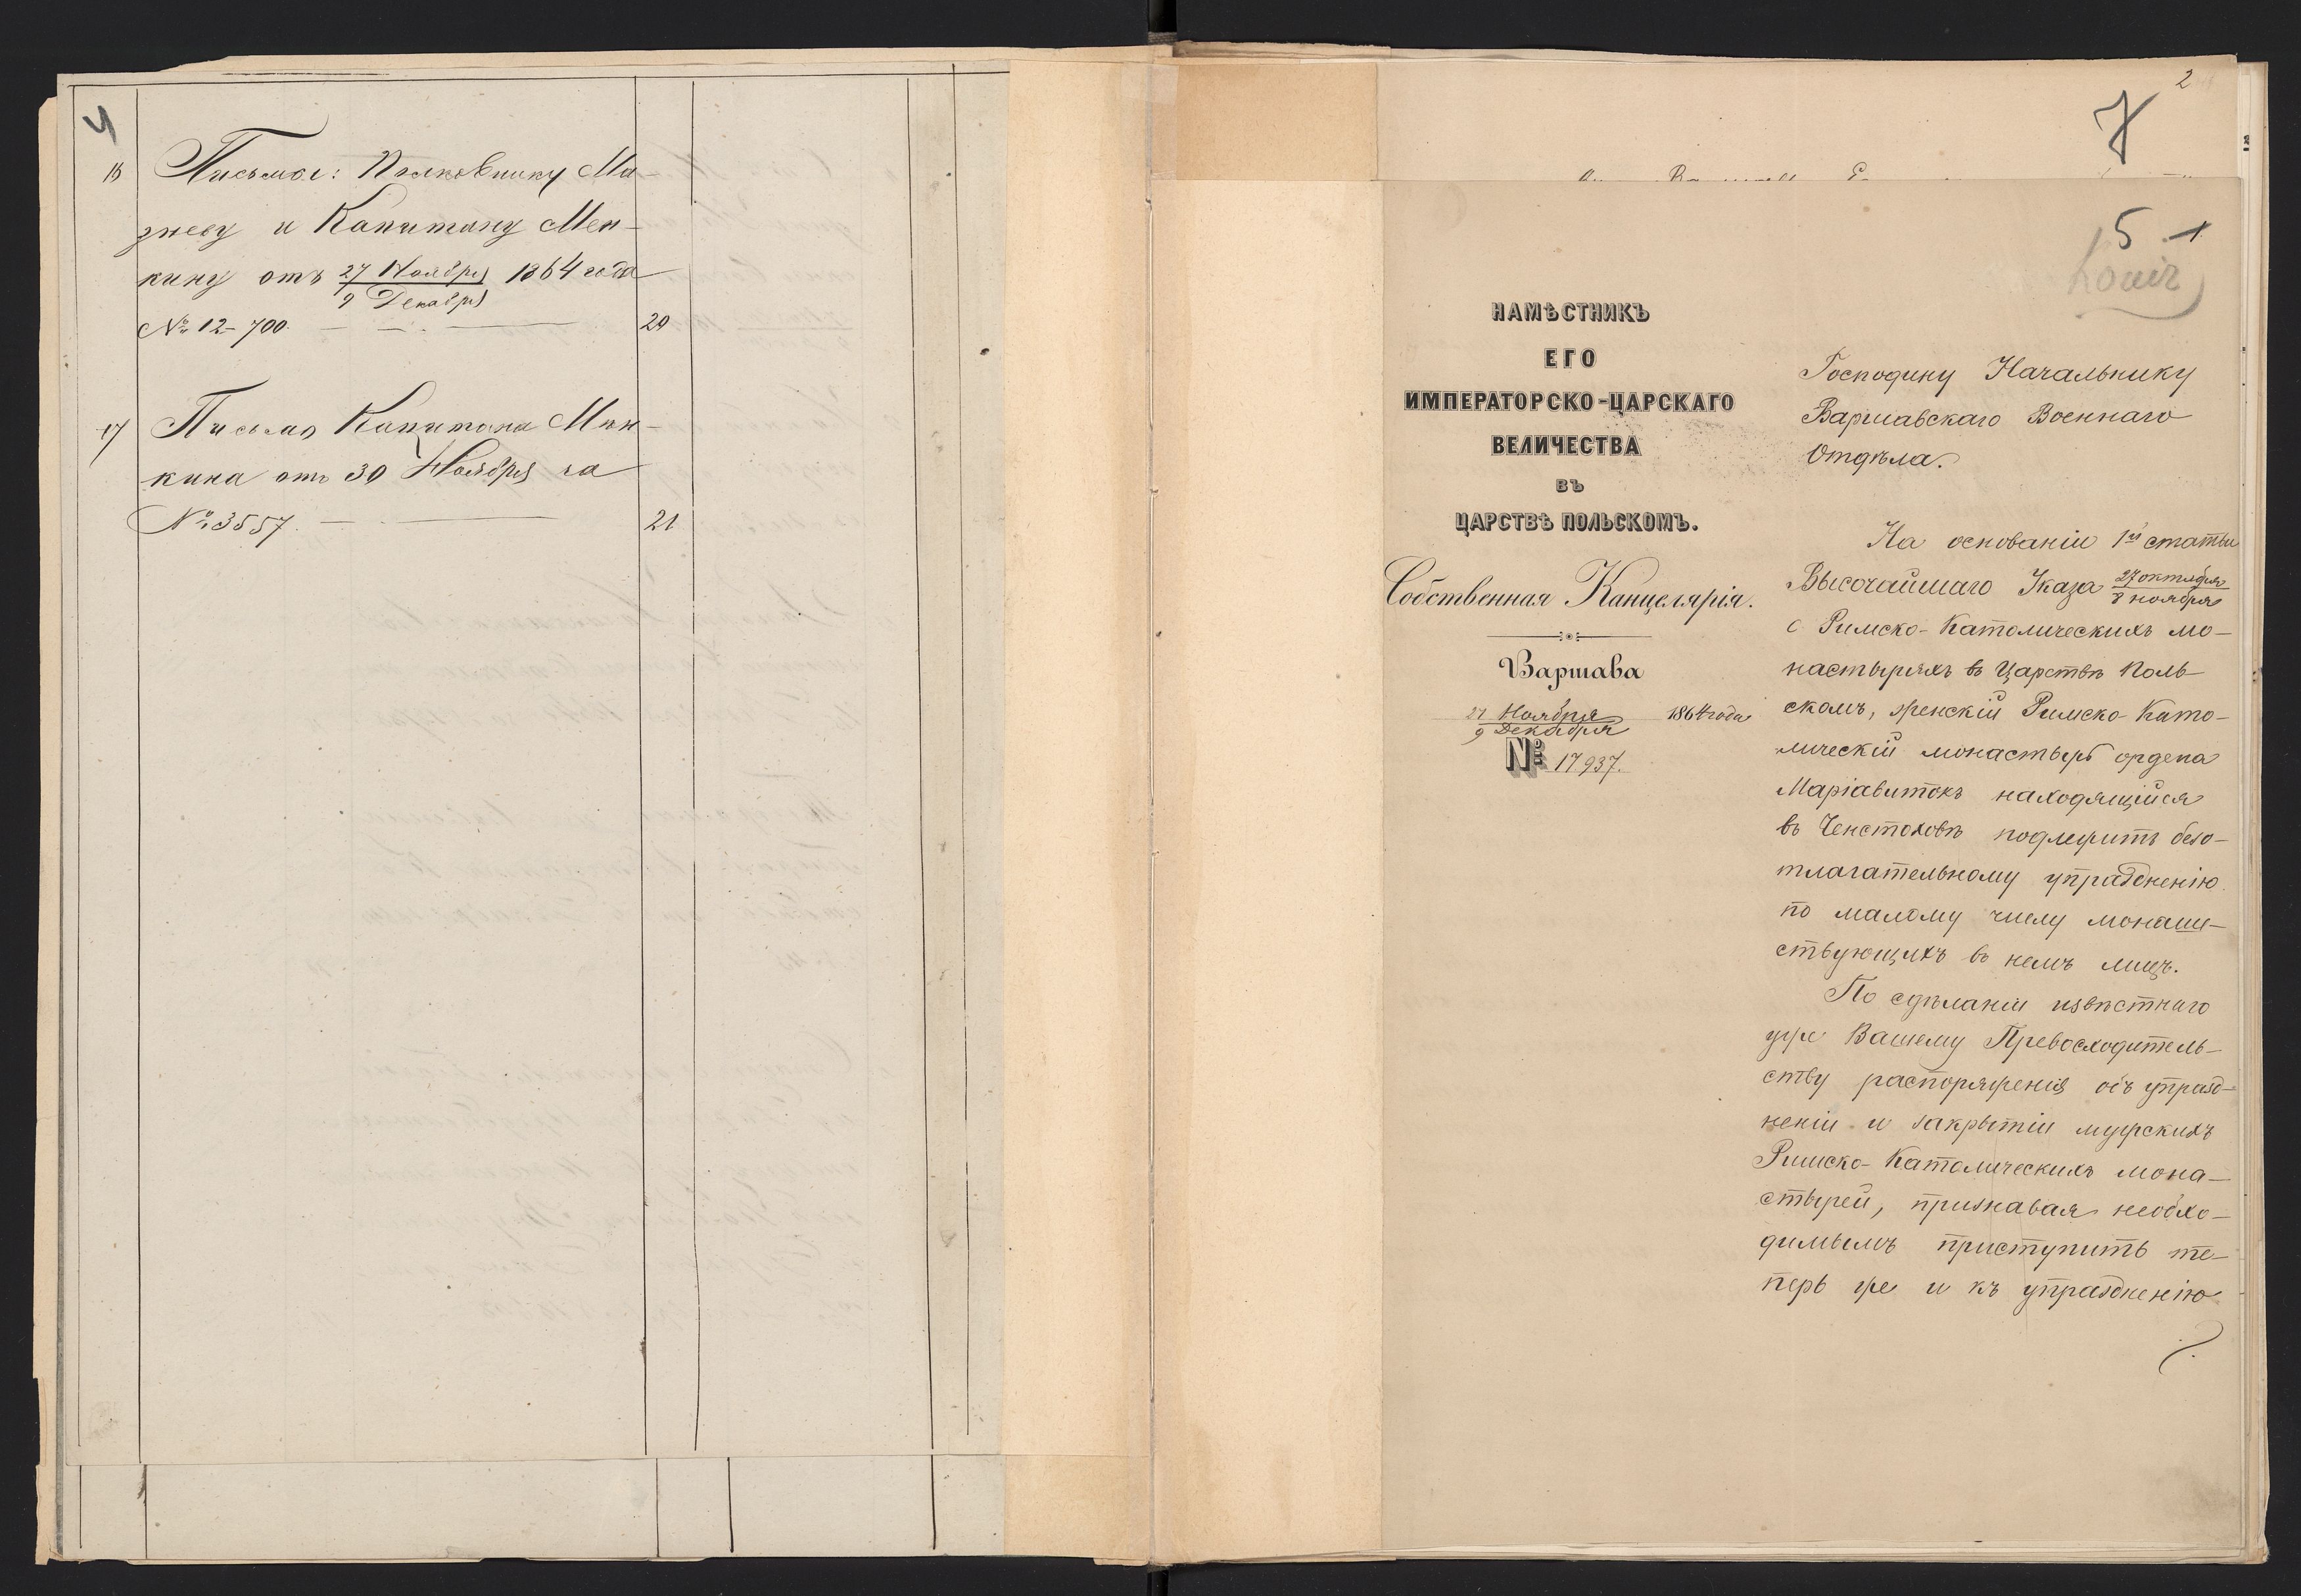 4
16 Письмо: Полковнику Ма-
зневу и Капитану Мен-
кину отъ 27 Ноября / 9 Декабря 1864 года
№ 12-700. 20
17 Письмо Капитана Мен-
кина отъ 30 Ноября за
№ 3557. 21
2
7
5 1
НАМѢСТНИКЪ
ЕГО
ИМПЕРАТОРСКО-ЦАРСКАГО
ВЕЛИЧЕСТВА
ВЪ
ЦАРСТВѢ ПОЛЬСКОМЪ.
Собственная Канцелярія.
Варшава
27 Ноября / 9 Декабря 1864 года
№ 17937.
Господину Начальнику
Варшавскаго Военнаго
Отдѣла.
На основаніи 1й статьи
Высочайшаго Указа 27 октября / 8 ноября
о Римско-Католическихъ мо-
настыряхъ въ Царствѣ Поль-
скомъ, женскій Римско-Като-
лическій монастырь ордена
Маріавитокъ находящійся
въ Ченстоховѣ подлежитъ безо-
тлагательному упраздненію
по малому числу монаше-
ствующихъ въ немъ лицъ.
По сдѣланіи извѣстнаго
уже Вашему Превосходитель-
ству распоряженія объ упразд-
неніи и закрытіи мужскихъ
Римско-Католическихъ мона-
стырей, признавая необхо-
димымъ приступить те-
перь же и къ упраздненію